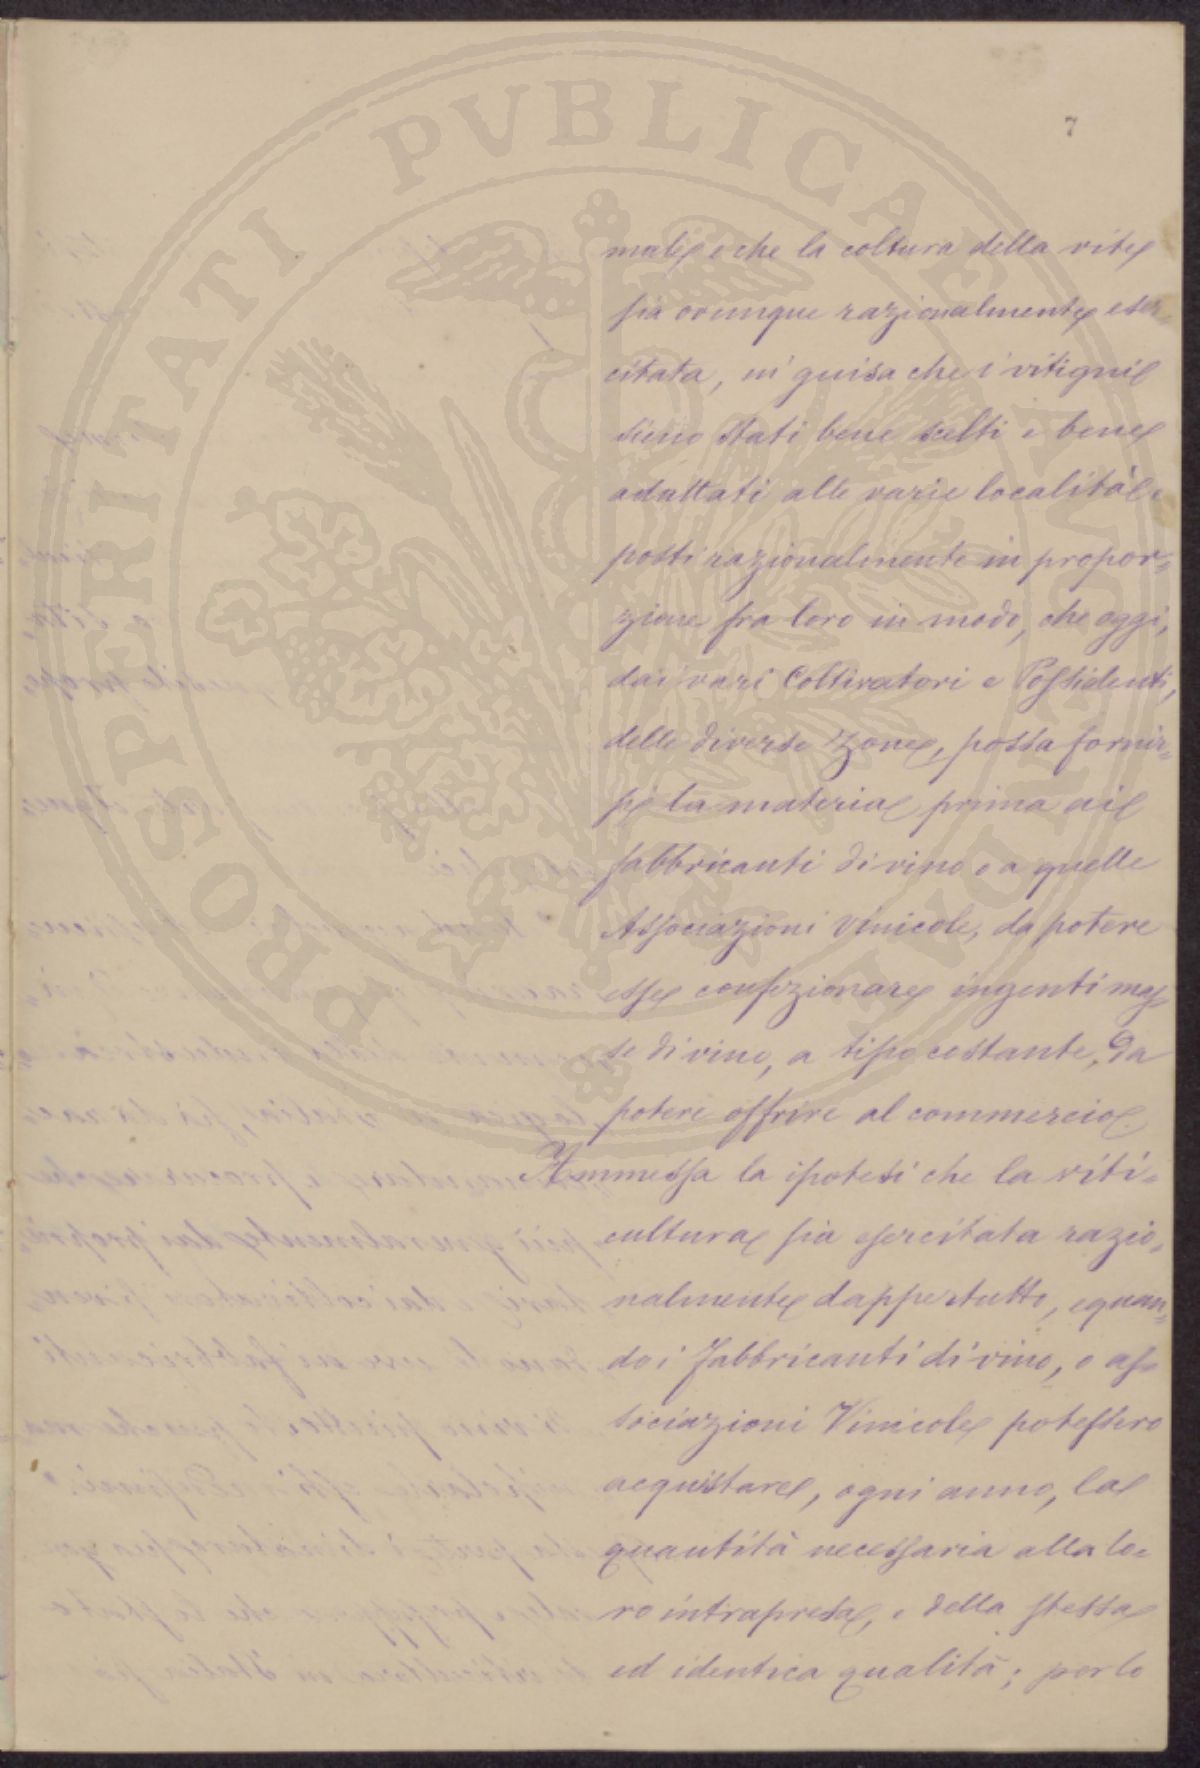 7
PROSPERITATI PVBLICAE AVGENDAE
male e che la coltura della vite
sia ovunque razionalmente eser-
citata, in guisa che i vitigni
sieno stati bene scelti e bene
adattati alle varie località e
posti razionalmente in propor=
zione fra loro in modo, che oggi,
dai vari Coltivatori e Possidenti,
delle diverse zone, possa fornir=
si la materia prima ai
fabbricanti di vino o a quelle
Associazioni Vinicole, da potere
esse confezionare ingenti mas
se di vino, a tipo costante, da
potere offrire al commercio.
Ammessa la ipotesi che la viti=
cultura sia esercitata razio=
nalmente dappertutto, e quan=
do i fabbricanti di vino, o as=
sociazioni Vinicole potessero
acquistare, ogni anno, la
quantità necessaria alla lo=
ro intrapresa, e della stessa
ed identica qualità; per lo